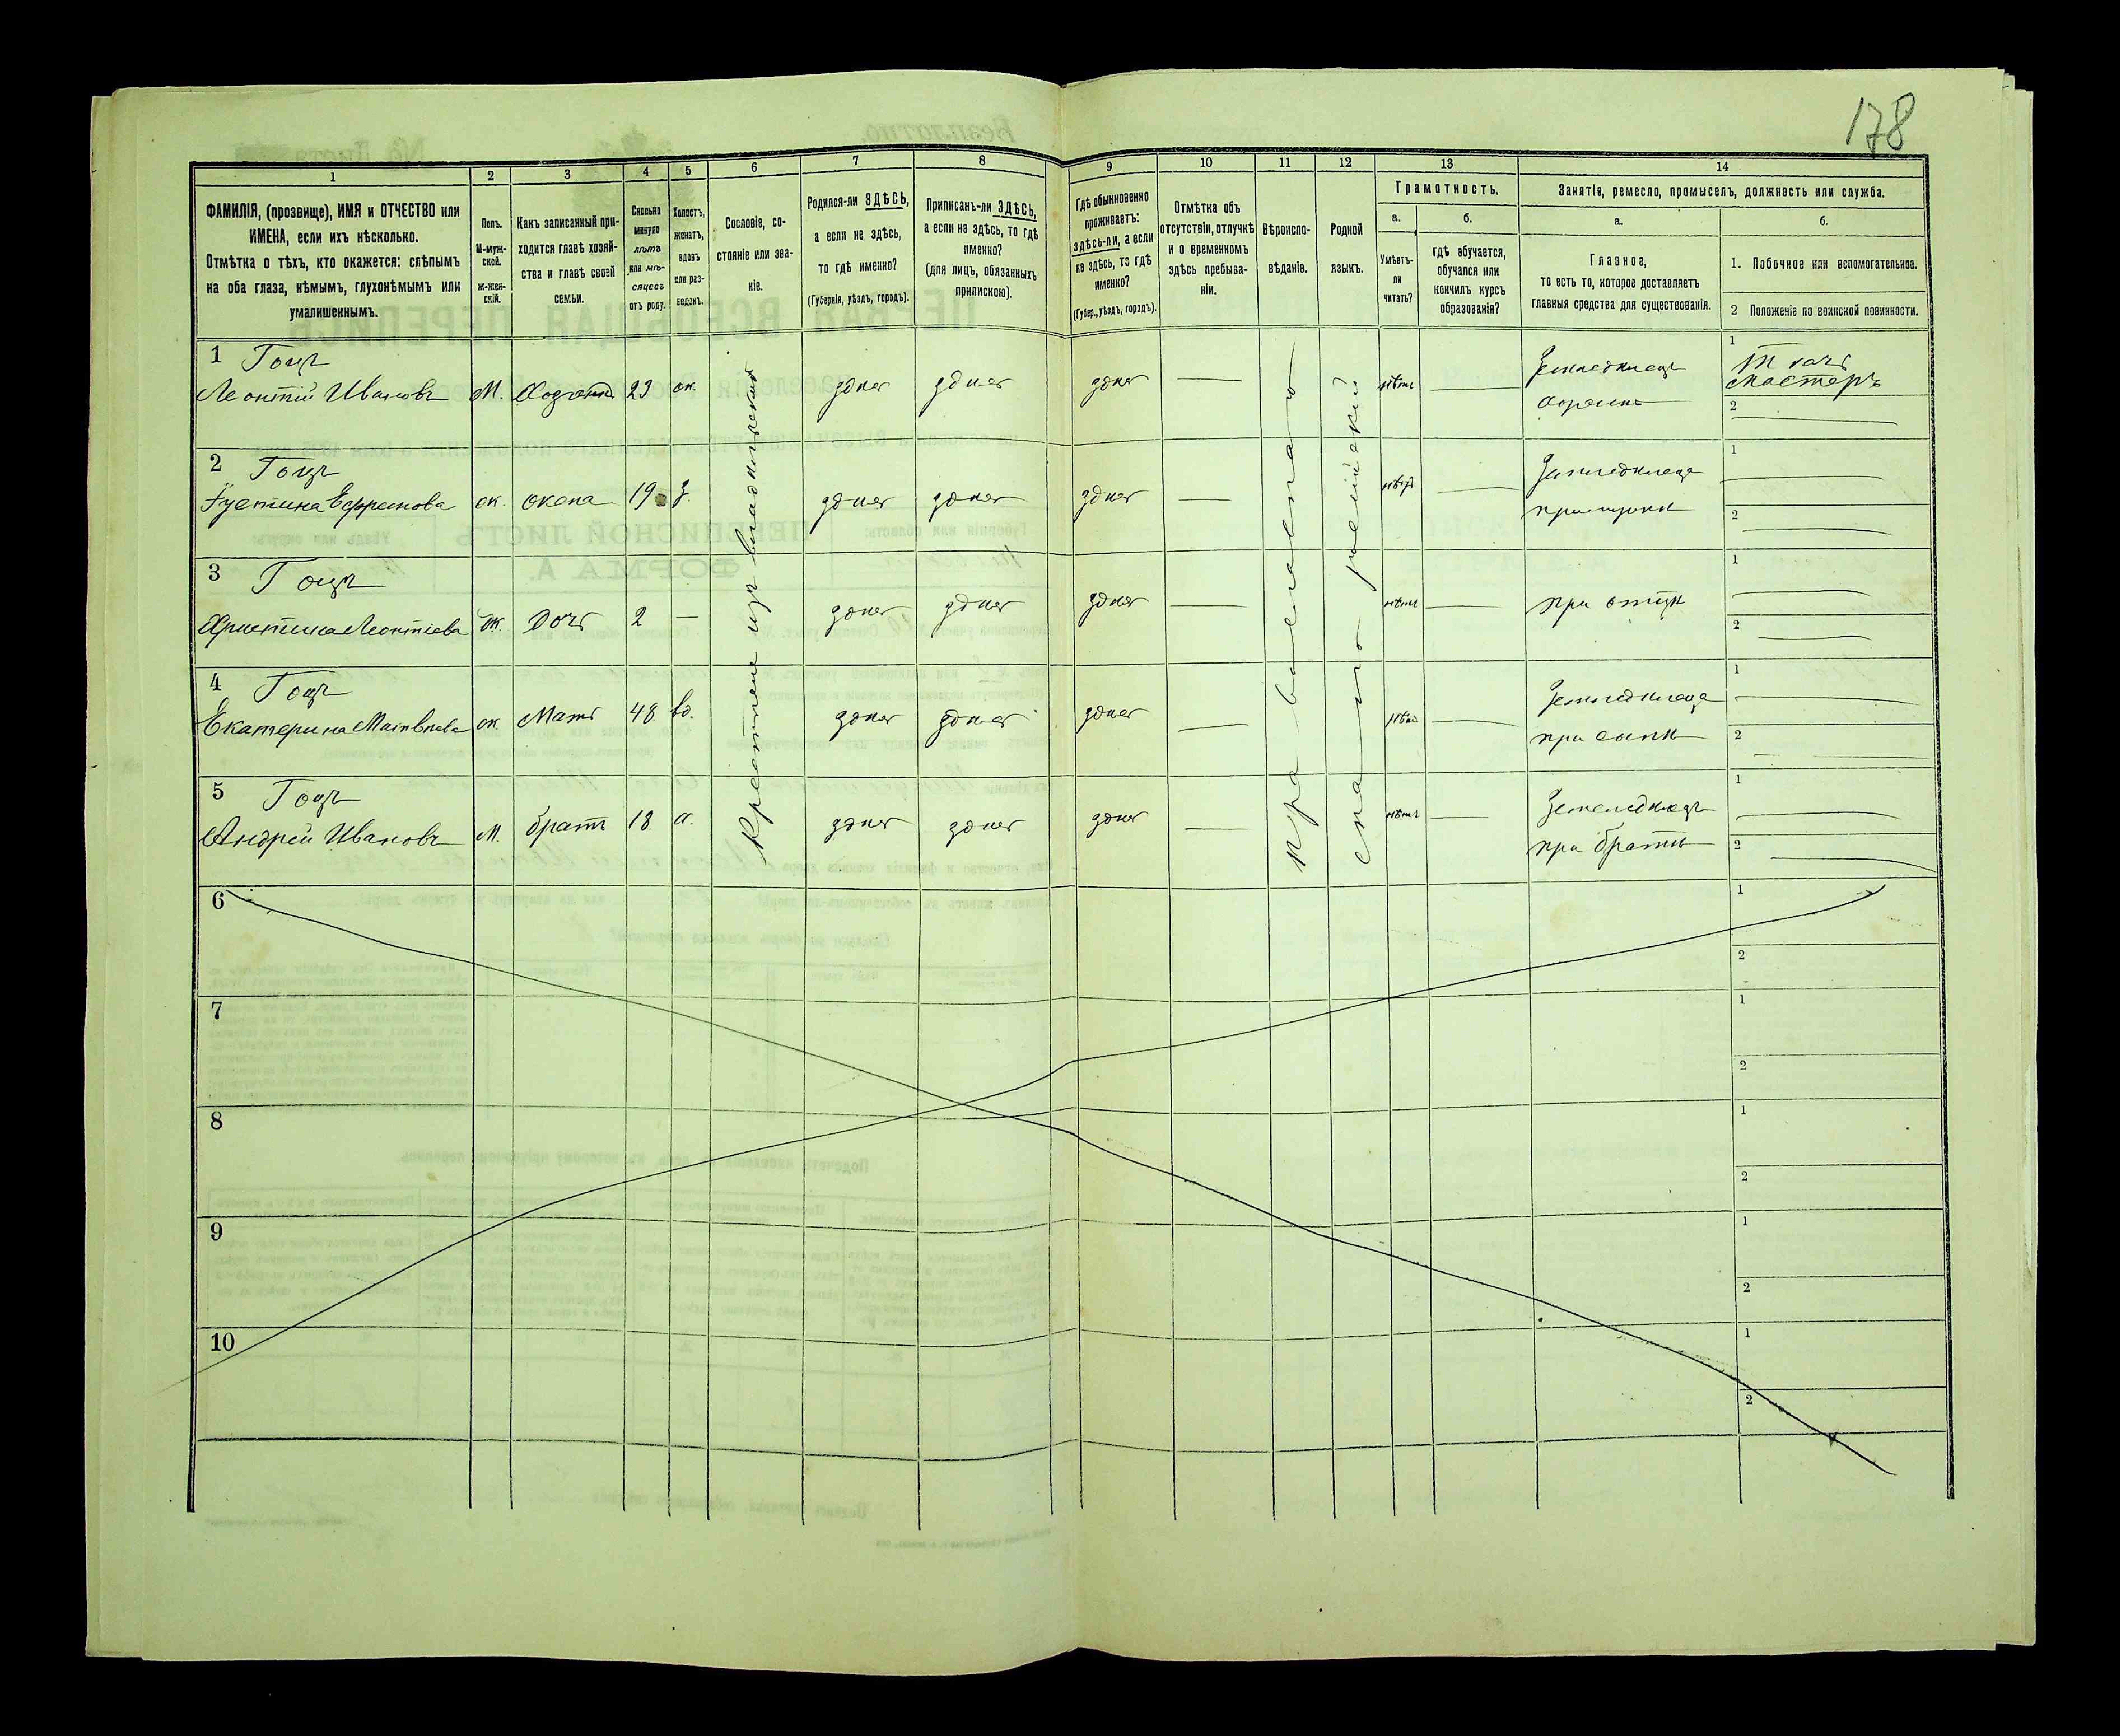 178
1
2
3
4
5
6
7
8
9
10
11
12
13
14
ФАМИЛІЯ, (прозвище), ИМЯ и ОТЧЕСТВО или
ИМЕНА, если ихъ нѣсколько.
Отмѣтка о тѣхъ, кто окажется: слѣпымъ
на оба глаза, нѣмымъ, глухонѣмымъ или
умалишеннымъ.
Полъ.
М-муж-
ской.
Ж-жен-
скій.
Какъ записанный при-
ходится главѣ хозяй-
ства и главѣ своей
семьи.
Сколько
минуло
лѣтъ
или мѣ-
сяцевъ
отъ роду.
Холостъ,
женатъ,
вдовъ
или раз-
веденъ.
Сословіе, со-
стояніе или зва-
ніе.
Родился-ли ЗДѢСЬ,
а если не здѣсь,
то гдѣ именно?
(Губернія, уѣздъ, городъ).
Приписанъ-ли ЗДѢСЬ,
а если не здѣсь, то гдѣ
именно?
(для лицъ, обязанныхъ
припискою).
Гдѣ обыкновенно
проживаетъ:
здѣсь-ли, а если
не здѣсь, то гдѣ
именно?
(Губер., уѣздъ, городъ).
Отмѣтка объ
отсутствіи, отлучкѣ
и о временномъ
здѣсь пребыва-
ніи.
Вѣроиспо-
вѣданіе.
Родной
языкъ.
Грамотность.
а.
б.
Умѣетъ-
ли
читать?
гдѣ обучается,
обучался или
кончилъ курсъ
образованія?
Занятіе, ремесло, промыселъ, должность или служба.
а.
б.
Главное,
то есть то, которое доставляетъ
главныя средства для существованія.
1. Побочное или вспомогательное.
2 Положеніе по воинской повинности.
1 Гоцъ
Леонтій Ивановъ М. Хозяинъ 23 ж. здѣсь здѣсь здѣсь — нѣтъ — Земледѣлецъ
хозяинъ
1 Ткачъ
мастеръ
2
2 Гоцъ
Іустина Ефремова ж. жена 19 з. здѣсь здѣсь здѣсь — нѣтъ —
при мужѣ
1
2
3 Гоцъ
Христина Леонтіева ж. Дочь 2 — здѣсь здѣсь здѣсь — нѣтъ — при отцѣ
1
2
4 Гоцъ
Екатерина Матвѣева ж. Мать 48 вд. здѣсь здѣсь здѣсь — нѣтъ —
при сынѣ
1
2
5 Гоцъ
Андрей Ивановъ М. братъ 18 х. здѣсь здѣсь здѣсь — нѣтъ — Земледѣлецъ
при братѣ
1
2
Крестьяне изъ владѣльческихъ
Православнаго
6
1
2
7
1
2
8
1
2
9
1
2
10
1
2